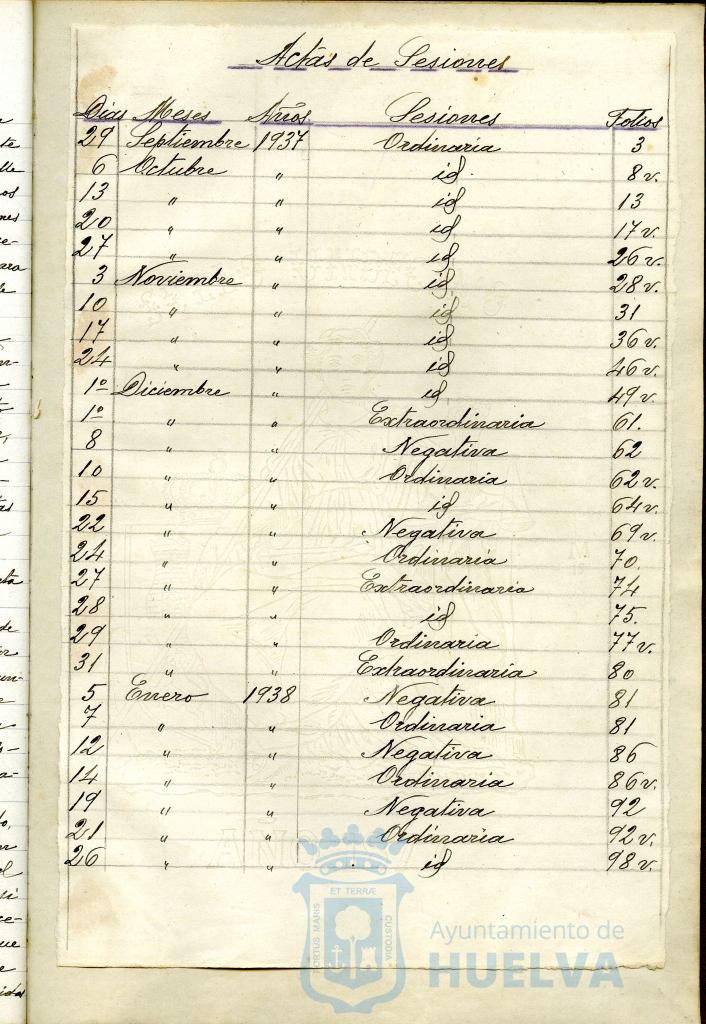 Actas de Sesiones
Dias Meses Años Sesiones Folios
29 Septiembre 1937 Ordinaria 3
6 Octubre " id. 8 v.
13 " " id 13
20 " " id. 17 v.
27 " " id 26 v.
3 Noviembre " id 28 v.
10 " " id 31
17 " " id 36 v.
24 " " id 46 v.
1º Diciembre " id 49 v.
1º " " Extraordinaria 61.
8 " " Negativa 62
10 " " Ordinaria 62 v.
15 " " id 64 v.
22 " " Negativa 69 v.
24 " " Ordinaria 70.
27 " " Extraordinaria 74
28 " " id 75.
29 " " Ordinaria 77 v.
31 " " Extraordinaria 80
5 Enero 1938 Negativa 81
7 " " Ordinaria 81
12 " " Negativa 86
14 " " Ordinaria 86 v.
19 " " Negativa 92
21 " " Ordinaria 92 v.
26 " " id 98 v.
ET TERRÆ
PORTUS MARIS
CUSTODIA
Ayuntamiento de
HUELVA